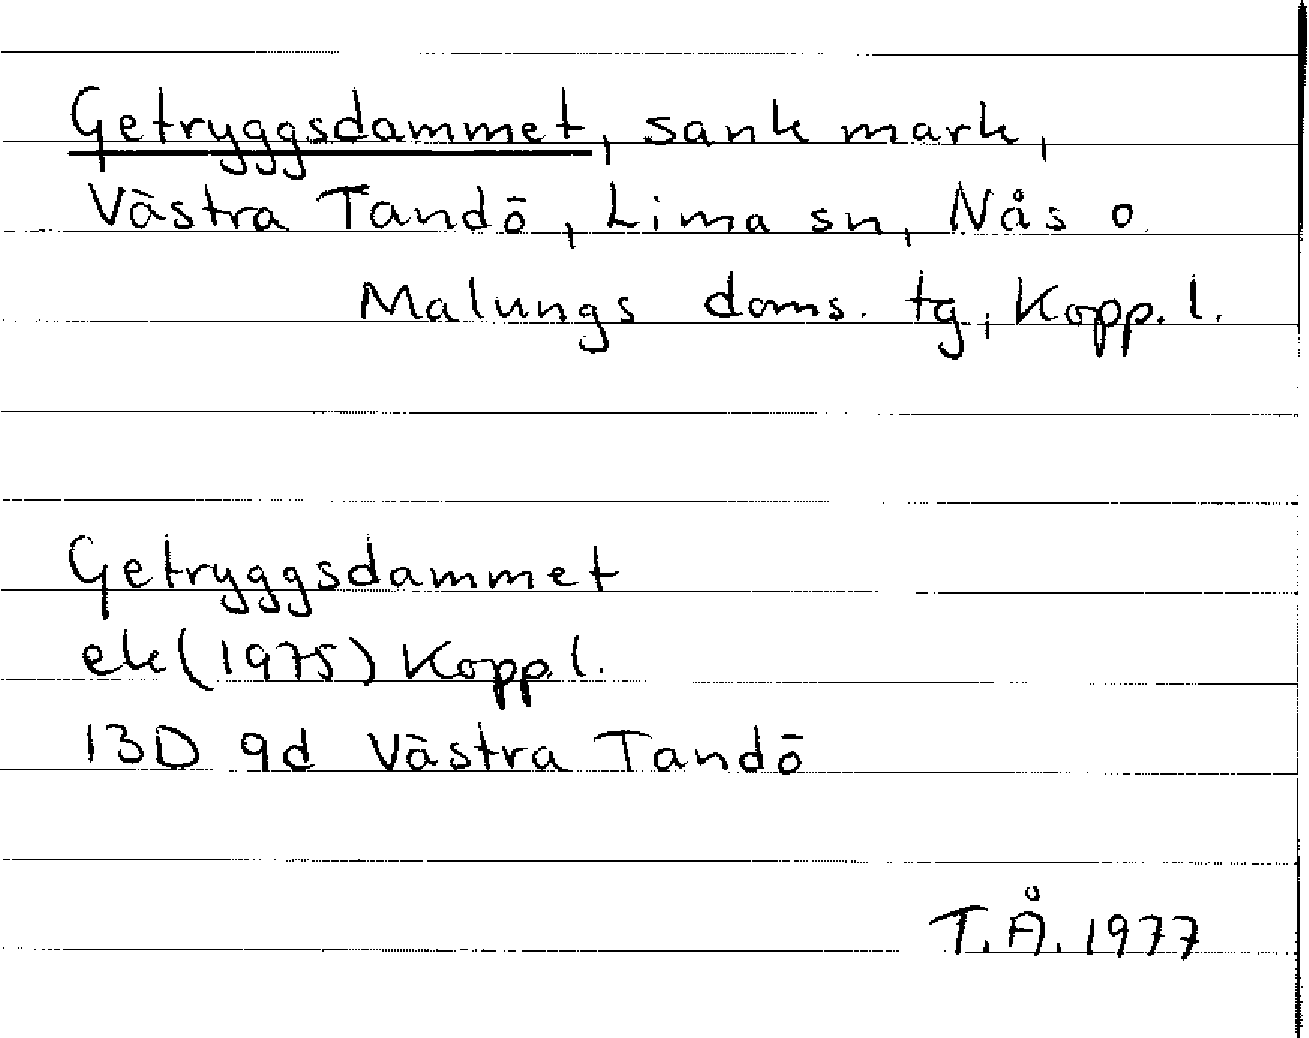 Getryggsdammet, sank mark,
Västra Tandö, Lima sn, Nås o
Malungs doms. tg, Kopp. l.
Getryggsdammet
ek (1975) Kopp. l.
13D 9d Västra Tandö
T.Å. 1977